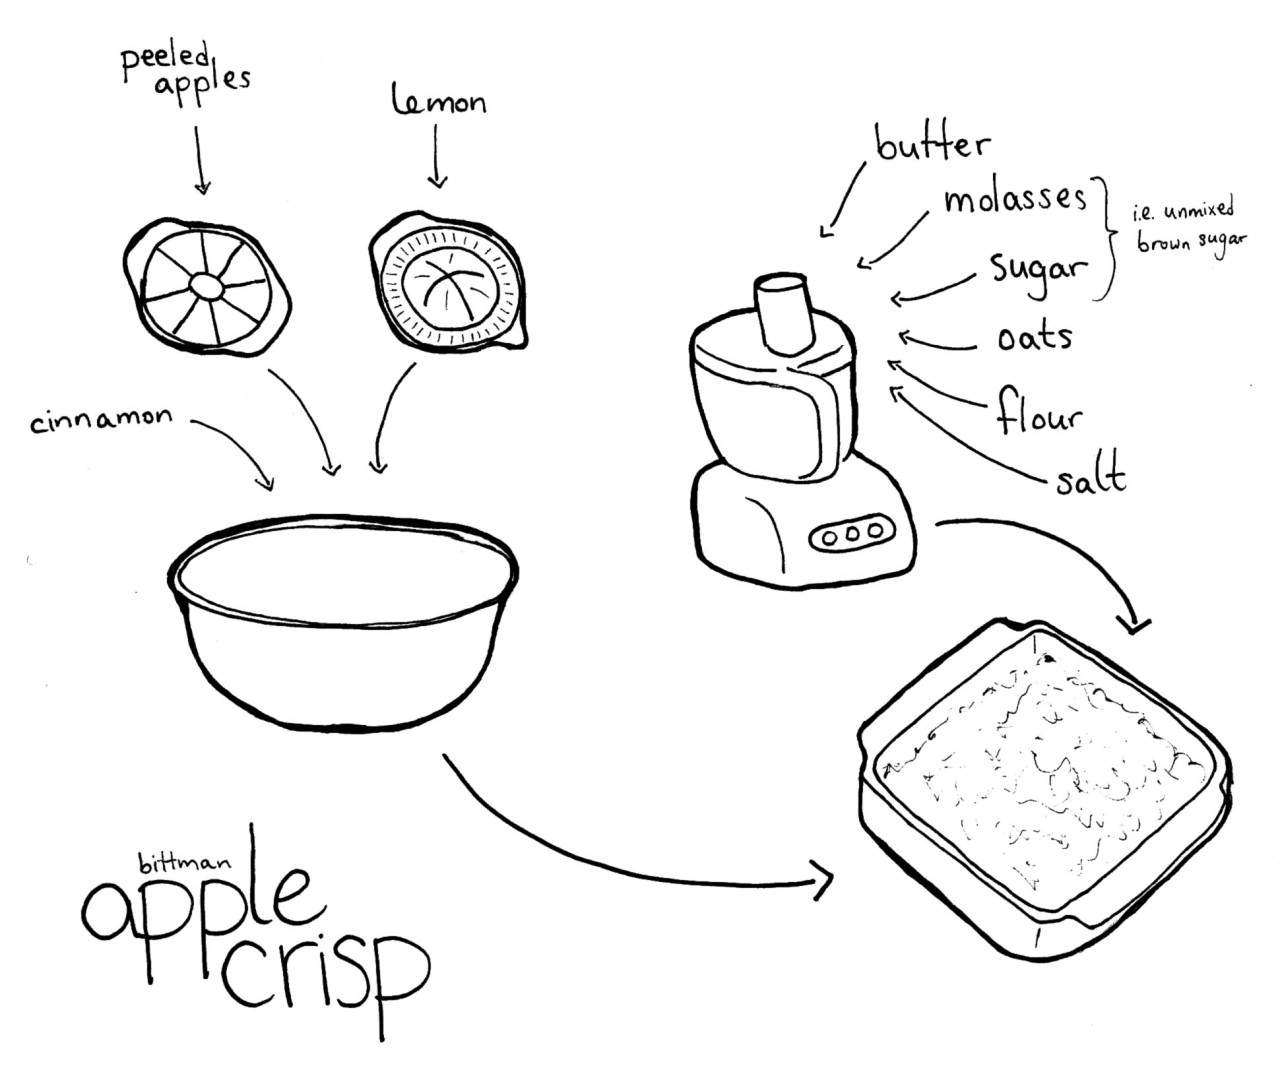 peeled
apples
lemon
cinnamon
butter
molasses
sugar
i.e. unmixed
brown sugar
oats
flour
salt
bittman
apple
crisp